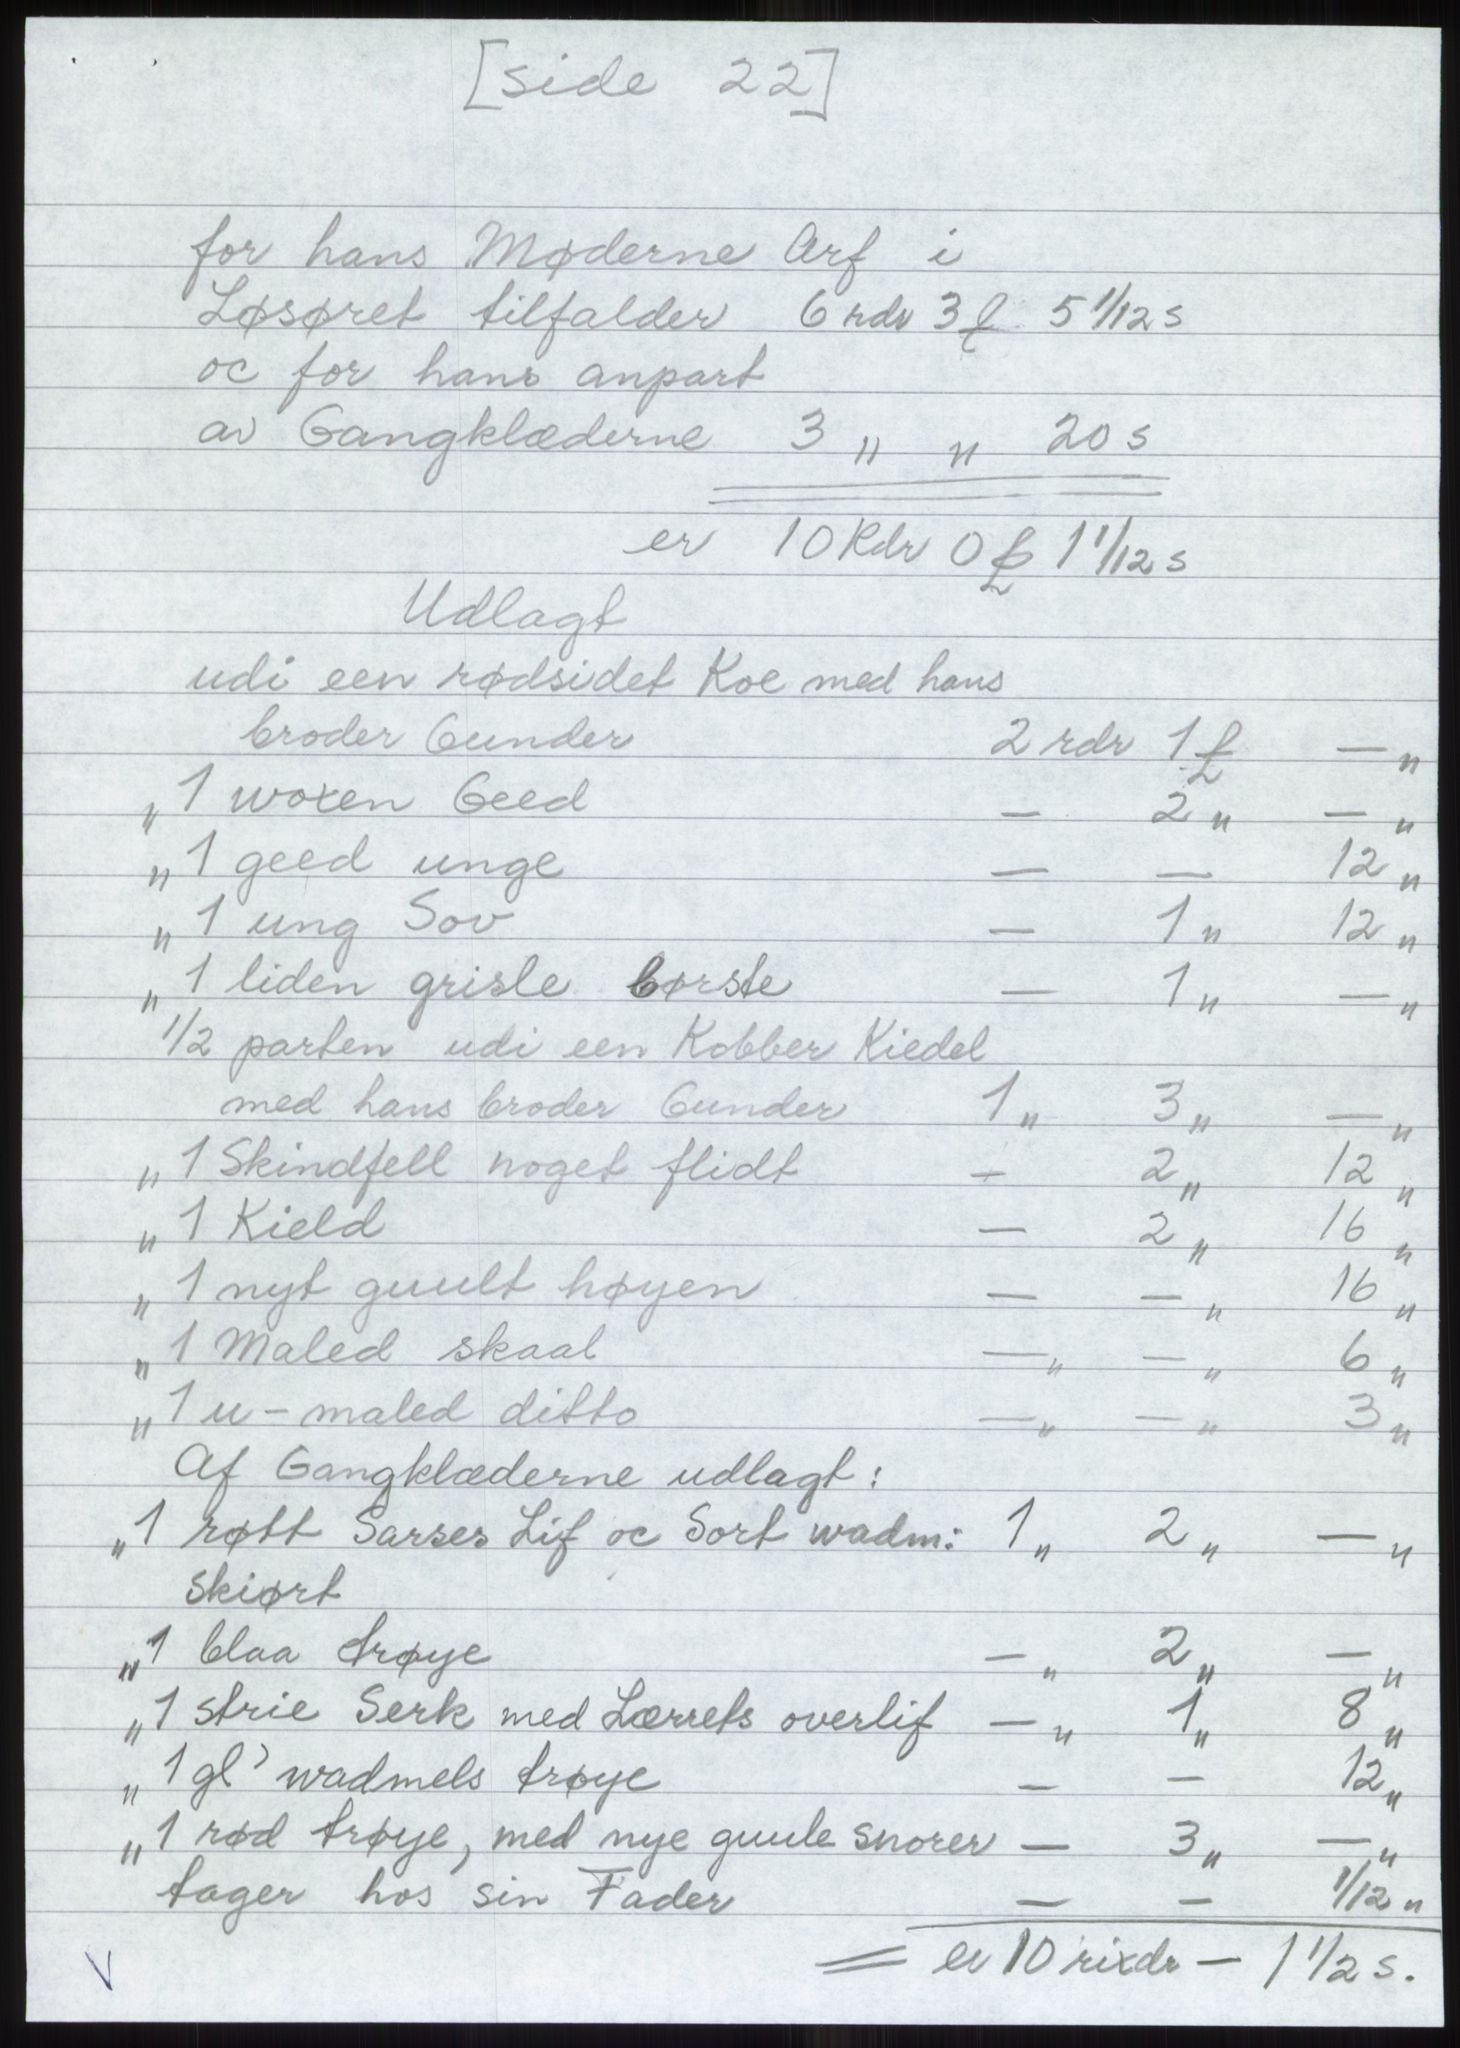 [side 22]
for hans Møderne Arf i
Løsøret tilfalder 6 rdr 3 ₤ 5 1/12 s
oc for hans anpart
av Gangklæderne 3 " " 20 s
er 10 Rdr 0 ₤ 1 1/12 s
Udlagt
udi een rødsidet Koe med hans
broder Gunder 2 rdr 1 ₤ — "
" 1 woxen Geed — 2 " — "
" 1 geed unge — — 12 "
" 1 ung Sov — 1 " 12 "
" 1 liden grisle børste — 1 " — "
1/2 parten udi een Kobber Kiedel
med hans broder Gunder 1 " 3 " — "
" 1 Skindfell noget flidt — 2 " 12 "
" 1 Kield — 2 " 16 "
" 1 nyt guult høyen — — " 16 "
" 1 Maled skaal — " — " 6 "
" 1 u-maled ditto — " — " 3 "
Af Gangklæderne udlagt:
" 1 røtt Sarses Lif oc Sort wadm: 1 " 2 " — "
skiørt
" 1 blaa trøye — " 2 " — "
" 1 strie Serk med Lærrets overlif — " 1 " 8 "
" 1 gl' wadmels trøye — — 12 "
" 1 rød trøye, med nye guule snorer — 3 " — "
tager hos sin Fader — — 1/12 "
er 10 rixdr — 1 1/2 s.
V